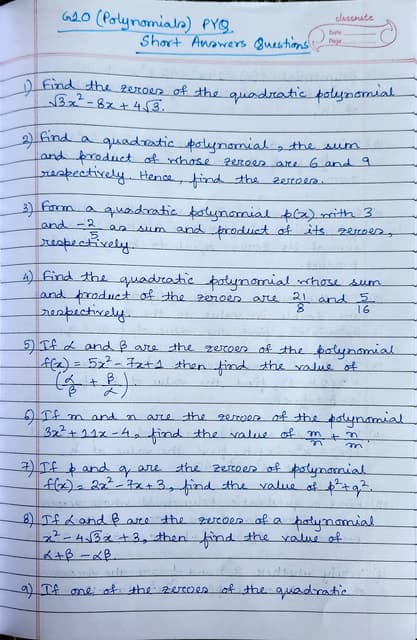 G10 (Polynomials) PYQ
Short Answers Questions
classmate
Date
Page
1) Find the zeroes of the quadratic polynomial
√3x² - 8x + 4√3.
2) Find a quadratic polynomial, the sum
and product of whose zeroes are 6 and 9
respectively. Hence, find the zeroes.
3) Form a quadratic polynomial p(x) with 3
and -2/5 as sum and product of its zeroes,
respectively.
4) Find the quadratic polynomial whose sum
and product of the zeroes are 21/8 and 5/16
respectively.
5) If α and β are the zeroes of the polynomial
f(x) = 5x² - 7x + 1 then find the value of
(α/β + β/α).
6) If m and n are the zeroes of the polynomial
3x² + 11x - 4, find the value of m/n + n/m.
7) If p and q are the zeroes of polynomial
f(x) = 2x² - 7x + 3, find the value of p² + q².
8) If α and β are the zeroes of a polynomial
x² - 4√3x + 3, then find the value of
α + β - αβ.
9) If one of the zeroes of the quadratic